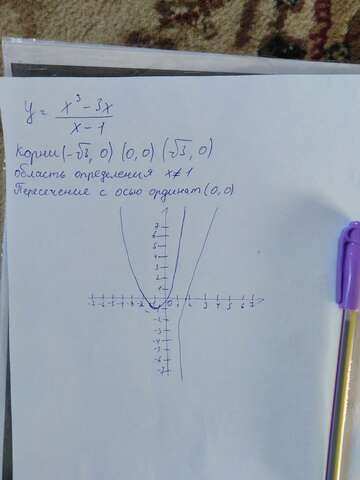 y = x³ - 3x / x - 1
Корни (-√3, 0) (0, 0) (√3, 0)
область определения x≠1
Пересечение с осью ординат (0, 0)